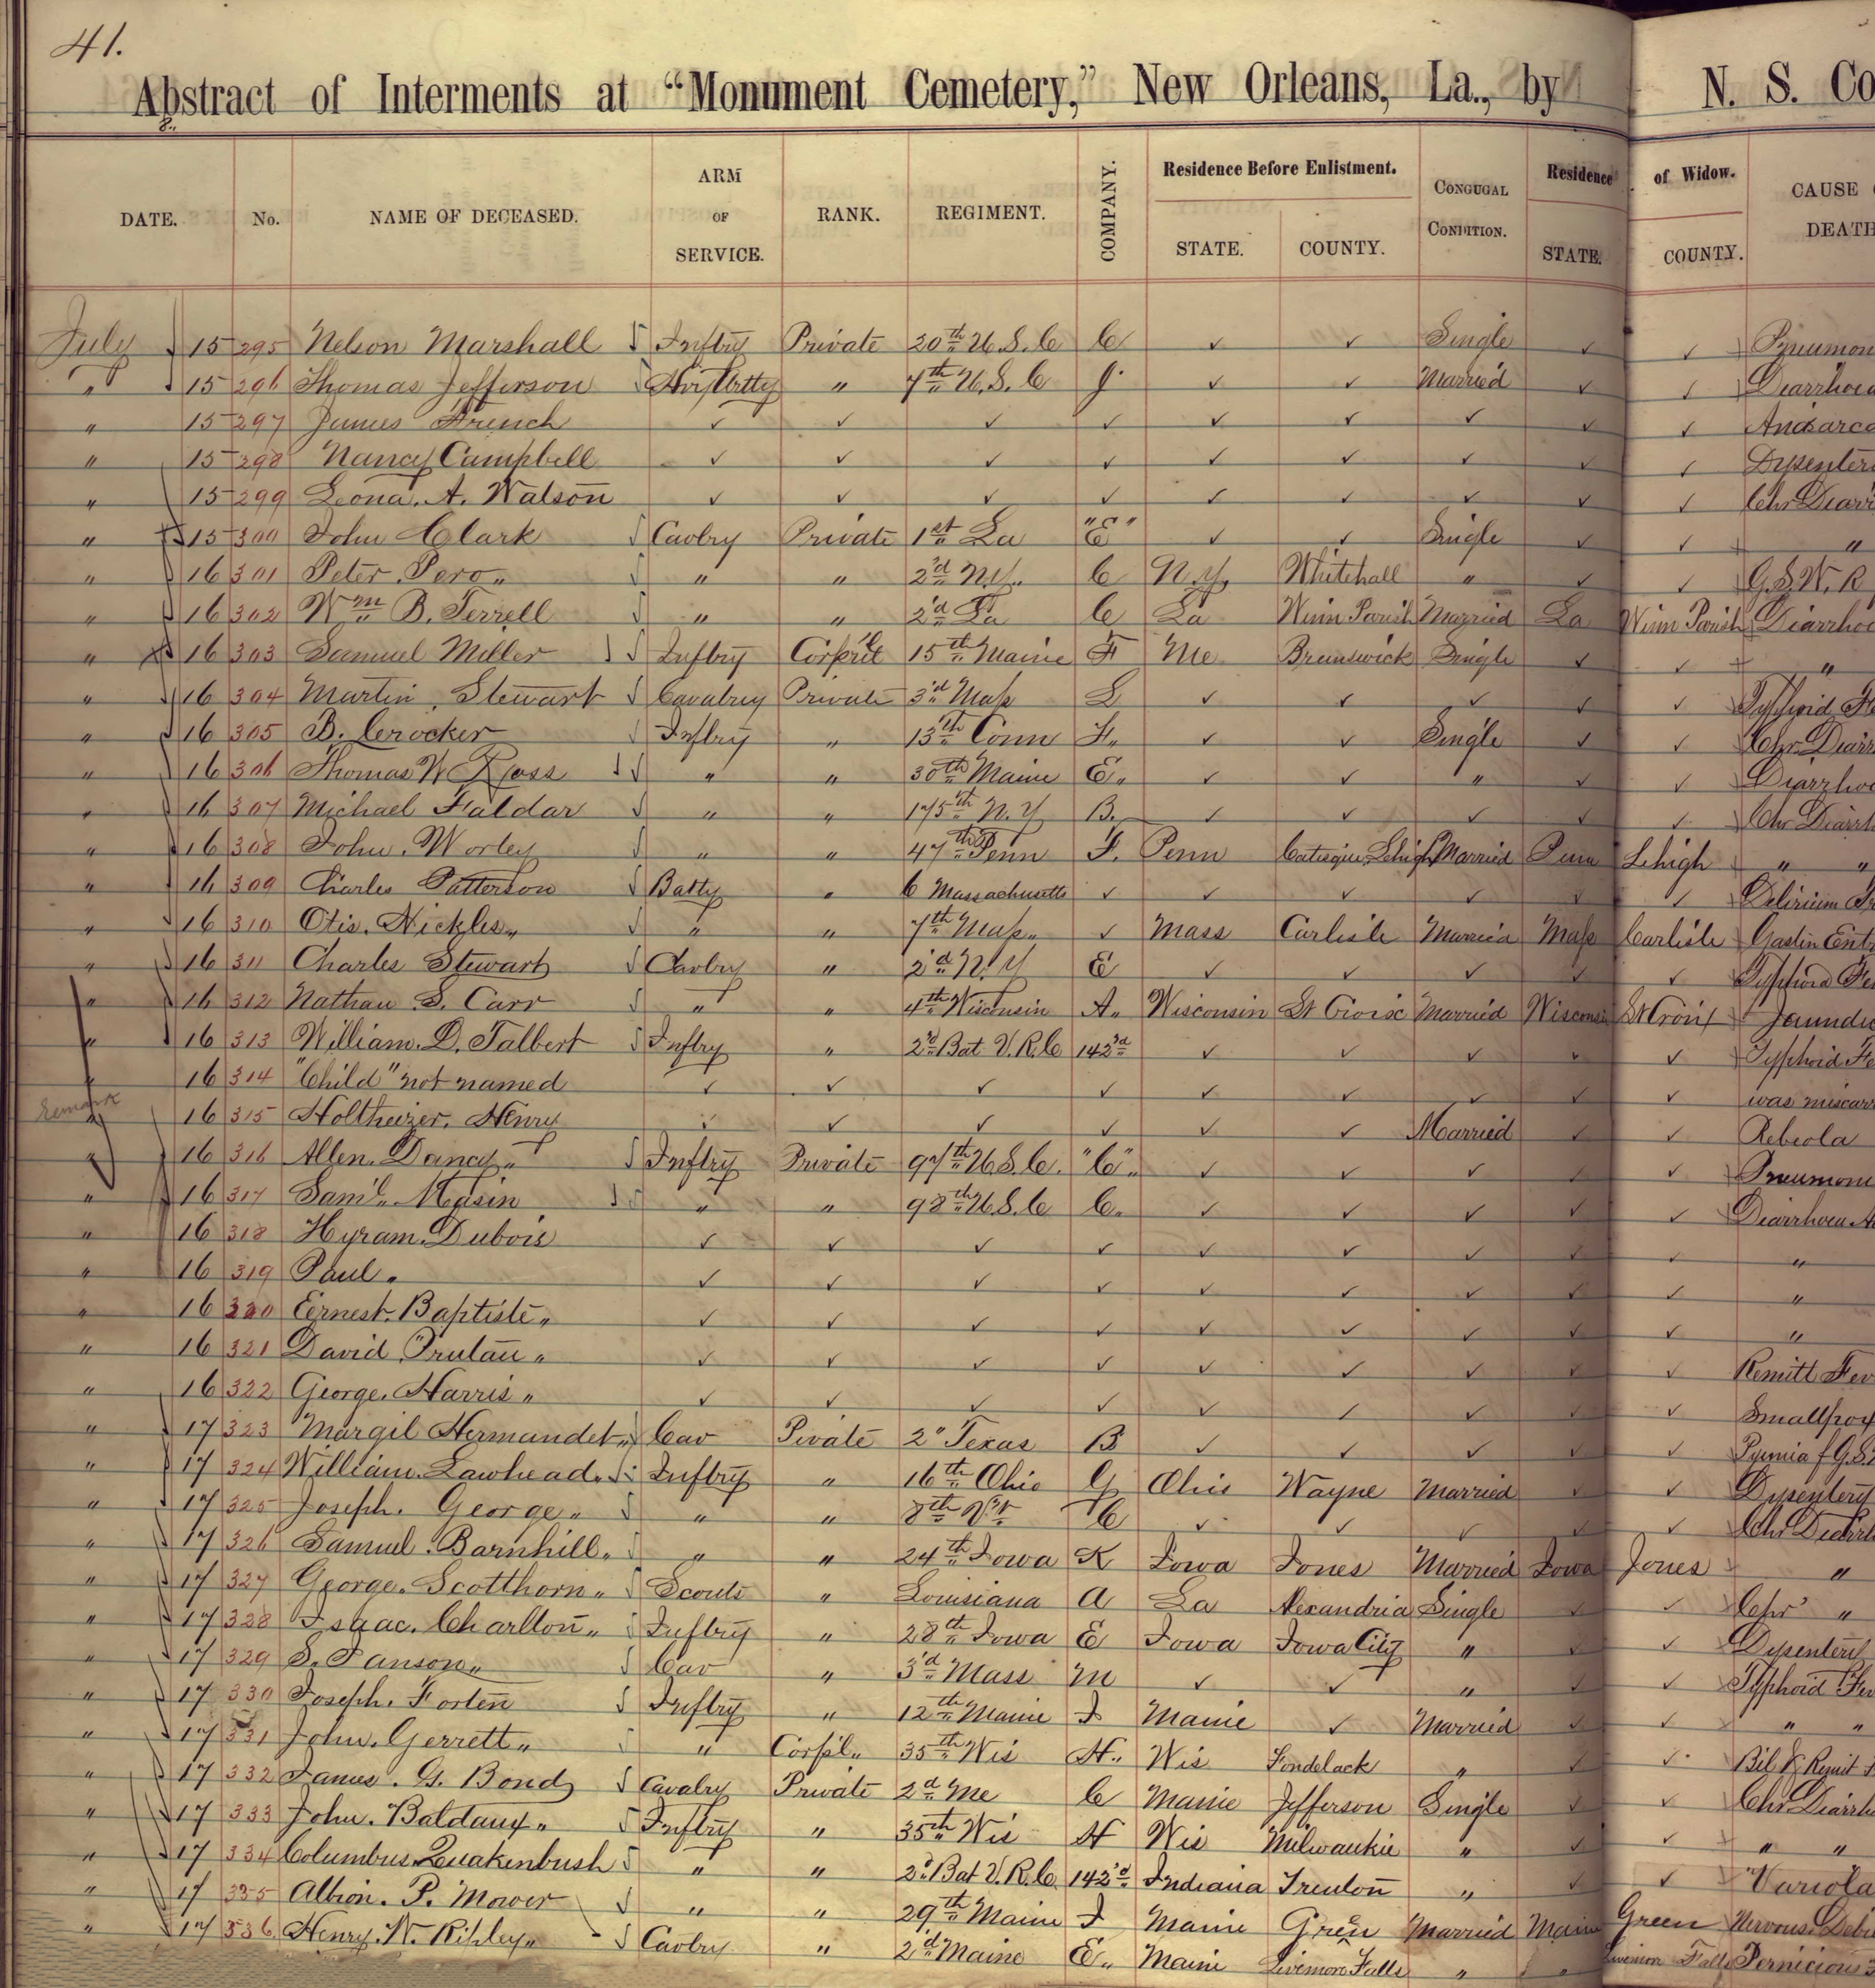 41.
Abstract of Interments at “Monument Cemetery,” New Orleans, La., by N. S. Co
DATE. No. NAME OF DECEASED. ARM OF SERVICE. RANK. REGIMENT. COMPANY. Residence Before Enlistment. STATE. COUNTY. CONGUGAL CONDITION. Residence of Widow. STATE. COUNTY. CAUSE DEATH
July 15 295 Nelson Marshall Inftry Private 20th U.S.C C ✓ ✓ Single ✓ ✓ Pneumon
" 15 296 Thomas Jefferson " 7th U.S.C ✓ ✓ Married ✓ ✓ Diarrhoea
" 15 297 James French ✓ ✓ ✓ ✓ ✓ ✓ ✓ ✓ ✓ Anasarca
" 15 298 Nancy Campbell ✓ ✓ ✓ ✓ ✓ ✓ ✓ ✓ ✓ Dysenter
" 15 299 Leona. A. Watson ✓ ✓ ✓ ✓ ✓ ✓ ✓ ✓ ✓ Chr Diarr
" 15 300 John Clark Cavlry Private 1st La "E" ✓ ✓ Single ✓ ✓ "
" 16 301 Peter Pero " " 2d N.Y. C N.Y. Whitehall " ✓ ✓ G.S.W. R
" 16 302 Wm B. Terrell " " 2d La C La Winn Parish Married La Winn Parish Diarrhoe
" 16 303 Samuel Miller Inftry 15th Maine F Me Brunswick Single ✓ ✓ "
" 16 304 Martin Stewart Cavalry Private 3d Mass L ✓ ✓ ✓ ✓ ✓ Typhoid Fe
" 16 305 B. Crocker Inftry " 13th Conn F. ✓ ✓ Single ✓ ✓ Chr. Diarr
" 16 306 Thomas W Ross " " 30th Maine E. ✓ ✓ " ✓ ✓ Diarrhoe
" 16 307 Michael Faldar " " 175th N.Y B. ✓ ✓ ✓ ✓ ✓ Chr Diarrh
" 16 308 John. Worley " " 47th Penn F. Penn Catisque, Lehigh Married Penn Lehigh " "
" 16 309 Charles Patterson Batty " 6 Massachusetts ✓ ✓ ✓ ✓ ✓ ✓ Delirium Tr
" 16 310 Otis. Nickles " " 7th Mass. ✓ Mass Carlisle Married Mass Carlisle Gastin Ent
" 16 311 Charles Stewart Cavlry " 2d N.Y E ✓ ✓ ✓ ✓ ✓ Typhoid Fe
" 16 312 Nathan S. Carr " " 4th Wisconsin A. Wisconsin St Croix Married Wisconsi St Croix Jaundic
" 16 313 William. D. Talbert Inftry " 2d Bat V.R.C 142d ✓ ✓ ✓ ✓ ✓ Typhoid Fe
" 16 314 "Child" not named ✓ ✓ ✓ ✓ ✓ ✓ ✓ ✓ ✓ was miscarr
remark " 16 315 Holtheizer. Henry ✓ ✓ ✓ ✓ ✓ ✓ Married ✓ ✓ Rebeola
" 16 316 Allen. Dancy Inftry Private 97th U.S.C. "C" ✓ ✓ ✓ ✓ ✓ Pneumoni
" 16 317 Saml. Masin " " 98th U.S.C C. ✓ ✓ ✓ ✓ ✓ Diarrhoea A
" 16 318 Hyram. Dubois ✓ ✓ ✓ ✓ ✓ ✓ ✓ ✓ ✓ "
" 16 319 Paul. ✓ ✓ ✓ ✓ ✓ ✓ ✓ ✓ ✓ "
" 16 320 Eernest. Baptiste ✓ ✓ ✓ ✓ ✓ ✓ ✓ ✓ ✓ "
" 16 321 David Prulau ✓ ✓ ✓ ✓ ✓ ✓ ✓ ✓ ✓ Remitt Fev
" 16 322 George. Harris ✓ ✓ ✓ ✓ ✓ ✓ ✓ ✓ ✓ Smallpox
" 17 323 Margil Hermandet Cav Pivate 2" Texas B ✓ ✓ ✓ ✓ ✓ Pyemia f G.S.
" 17 324 William. Lawhead. Inftry " 16th Ohio G Ohio Wayne Married ✓ ✓ Dysentery
" 17 325 Joseph. George " " 8th Vt C ✓ ✓ ✓ ✓ ✓ Chr Diarrh
" 17 326 Samuel. Barnhill. " " 24th Iowa K Iowa Jones Married Iowa Jones "
" 17 327 George. Scotthorn Scouts " Louisiana A La Alexandria Single ✓ ✓ Chr "
" 17 328 Isaac. Charlton Inftry " 28th Iowa E Iowa Iowa City " ✓ ✓ Dysentery
" 17 329 S. Panson Cav " 3d Mass M ✓ ✓ " ✓ ✓ Typhoid Fev
" 17 330 Joseph. Forten Inftry " 12th Maine I Maine ✓ Married ✓ ✓ " "
" 17 331 John. Gerrett " Corpl. 35th Wis H. Wis Fondelack " ✓ ✓ Bil & Remit
" 17 332 James. G. Bond Cavalry Private 2d Me C Maine Jefferson Single ✓ ✓ Chr. Diarrh
" 17 333 John. Baldauf Inftry " 35th Wis H Wis Milwaukie " ✓ ✓ " "
" 17 334 Columbus. Quakenbush " " 2d Bat V.R.C. 142d Indiana Trenton " ✓ ✓ Variola
" 17 335 Albion. P. Mower " " 29th Maine I Maine Green Married Main Green Nervous Debi
" 17 336 Henry. W. Ripley Cavlry " 2d Maine E. Maine Livemore Falls " " Livemore Falls Pernicious